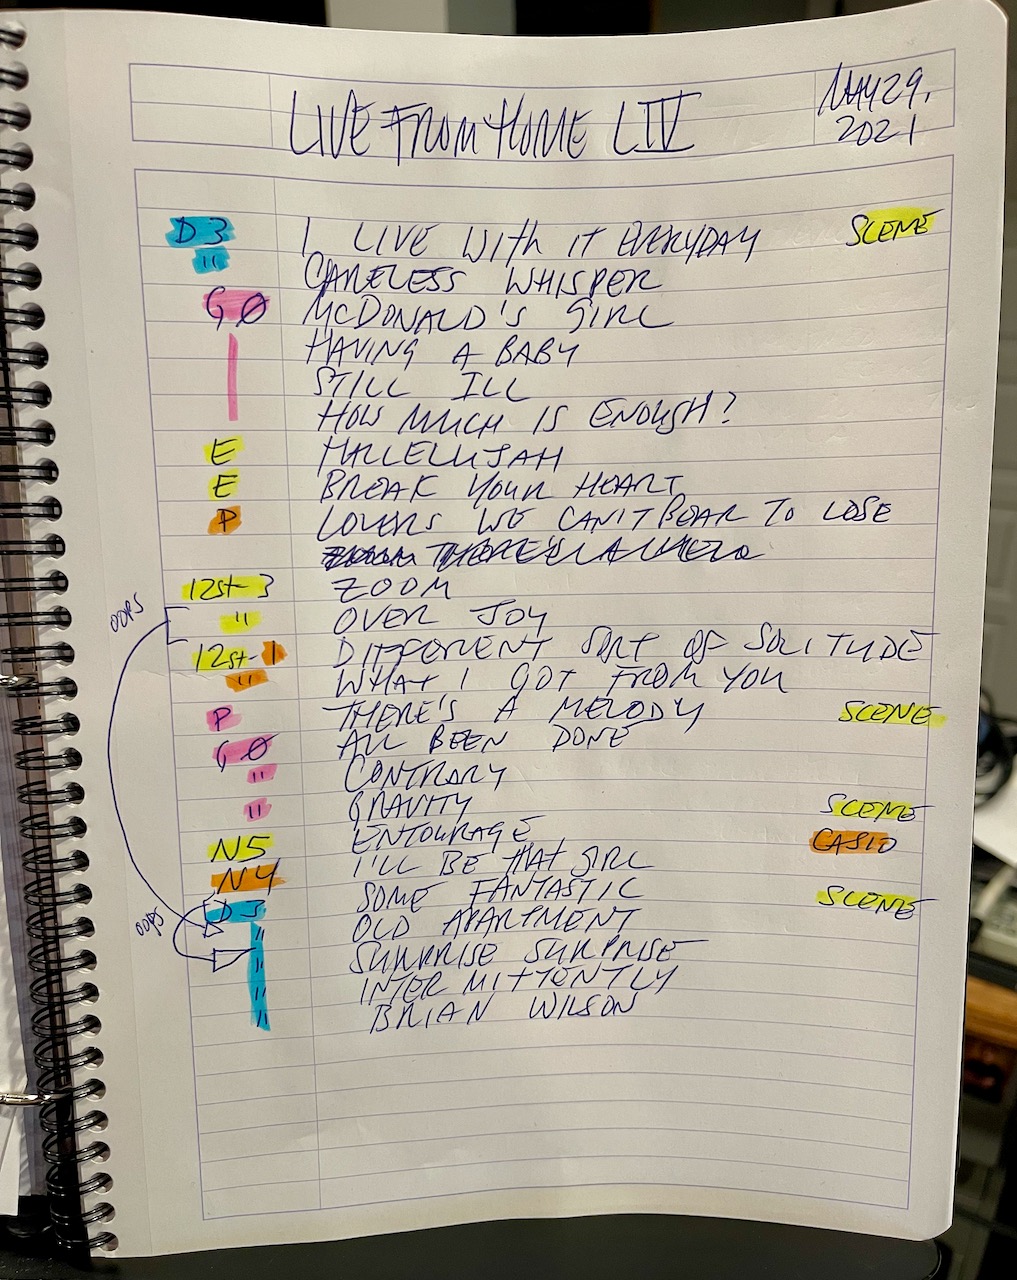 LIVE FROM HOME LIV MAY 29, 2021
D3 I LIVE WITH IT EVERYDAY SCENE
" CARELESS WHISPER
GØ MCDONALD'S GIRL
HAVING A BABY
STILL ILL
HOW MUCH IS ENOUGH?
E HALLELUJAH
E BREAK YOUR HEART
P LOVERS WE CAN'T BEAR TO LOSE
THERE'S A MELO
12st-3 ZOOM
OOPS " OVER JOY
12st-1 DIFFERENT SORT OF SOLITUDE
" WHAT I GOT FROM YOU
P THERE'S A MELODY SCENE
GØ ALL BEEN DONE
" CONTRARY
" GRAVITY SCENE
N5 ENTOURAGE CASIO
N4 I'LL BE THAT GIRL
D3 SOME FANTASTIC SCENE
OOPS " OLD APARTMENT
" SURPRISE SURPRISE
" INTERMITTENTLY
" BRIAN WILSON